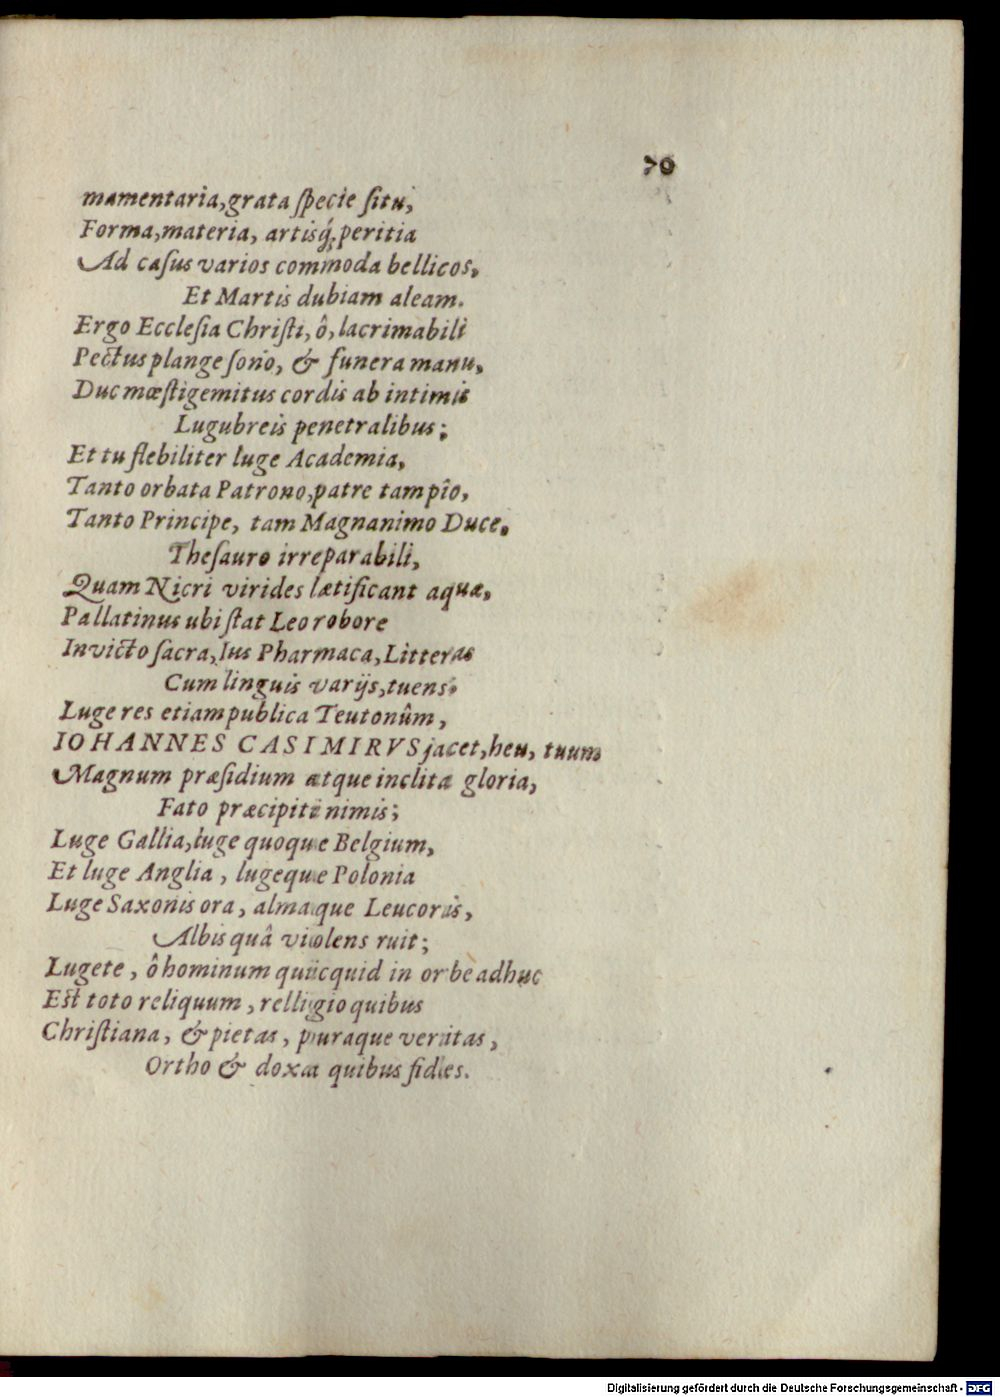 70
mamentaria, grata ſpecie ſitu,
Forma, materia, artisq́; peritia
Ad caſus varios commoda bellicos,
Et Martis dubiam aleam.
Ergo Eccleſia Chriſti, ô, lacrimabili
Pectus plange ſono, & funera manu,
Duc mœſti gemitus cordis ab intimis
Lugubreis penetralibus;
Et tu flebiliter luge Academia,
Tanto orbata Patrono, patre tam pîo,
Tanto Principe, tam Magnanimo Duce,
Theſauro irreparabili,
Quam Nicri virides lætificant aquæ,
Pallatinus ubi ſtat Leo robore
Invicto ſacra, Ius Pharmaca, Litteras
Cum linguis varijs, tuens.
Luge res etiam publica Teutonûm,
IOHANNES CASIMIRVS jacet, heu, tuum
Magnum præſidium atque inclita gloria,
Fato præcipiti nimis;
Luge Gallia, luge quoque Belgium,
Et luge Anglia, lugeque Polonia
Luge Saxonis ora, almaque Leucoris,
Albis quâ violens ruit;
Lugete, ô hominum quicquid in orbe adhuc
Eſt toto reliquum, relligio quibus
Chriſtiana, & pietas, puraque veritas,
Ortho & doxa quibus fides.
Digitalisierung gefördert durch die Deutsche Forschungsgemeinschaft - DFG